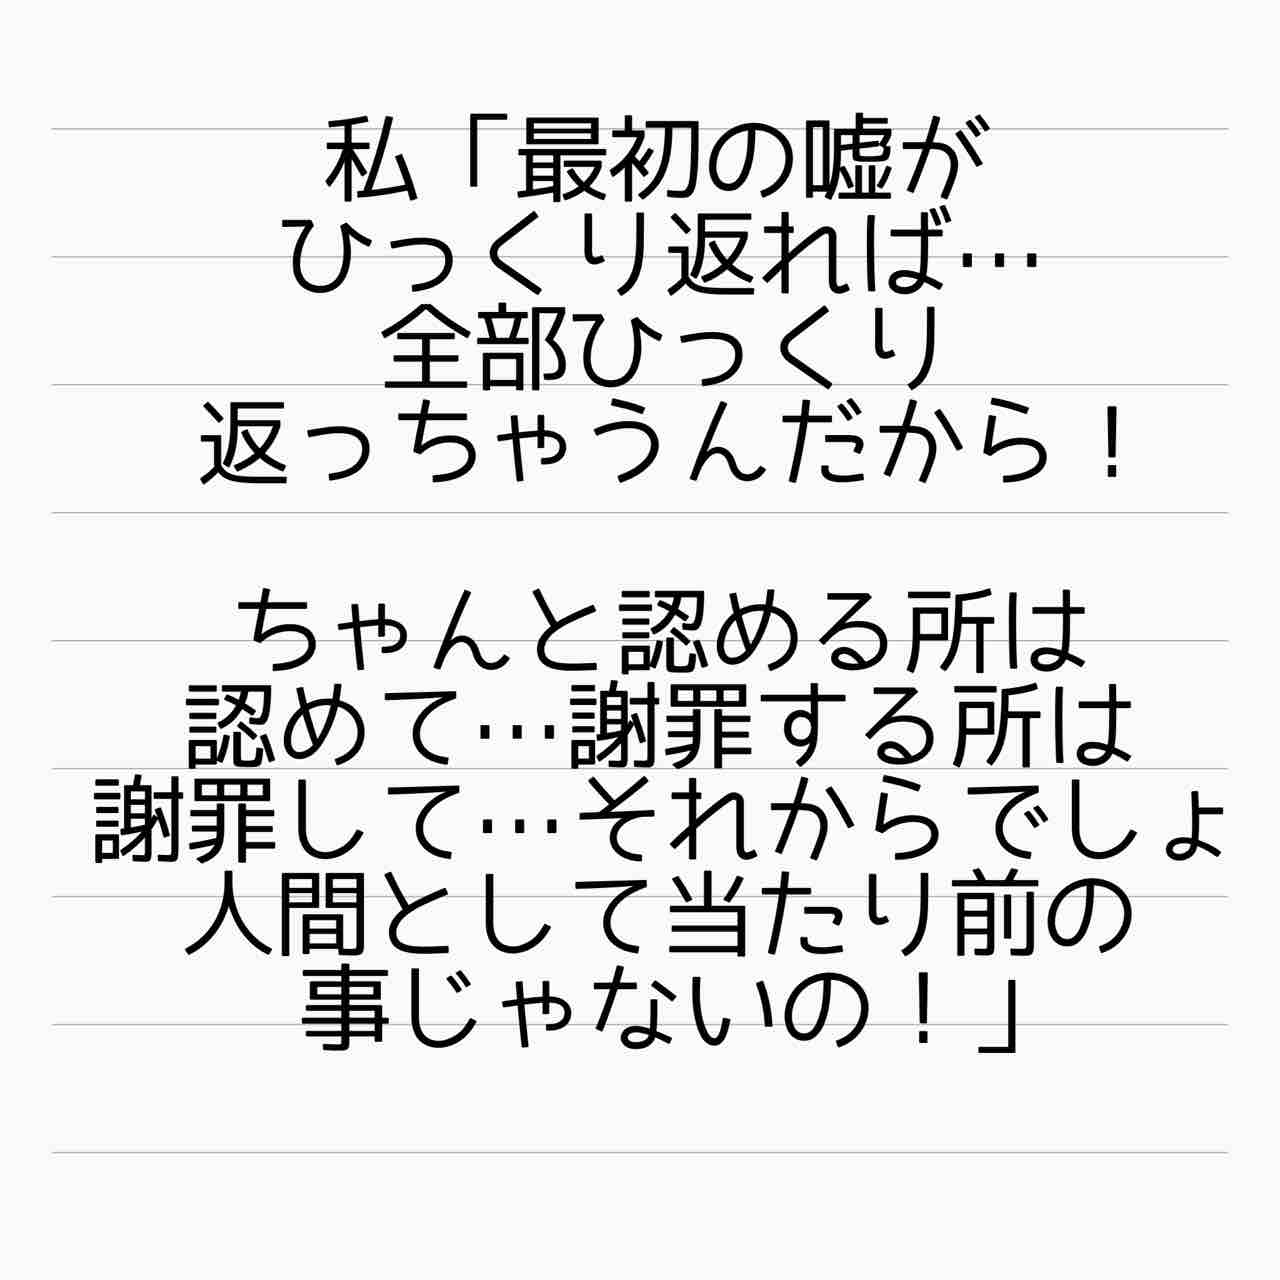 私「最初の嘘が
ひっくり返れば…
全部ひっくり
返っちゃうんだから！
ちゃんと認める所は
認めて…謝罪する所は
謝罪して…それからでしょ
人間として当たり前の
事じゃないの！」